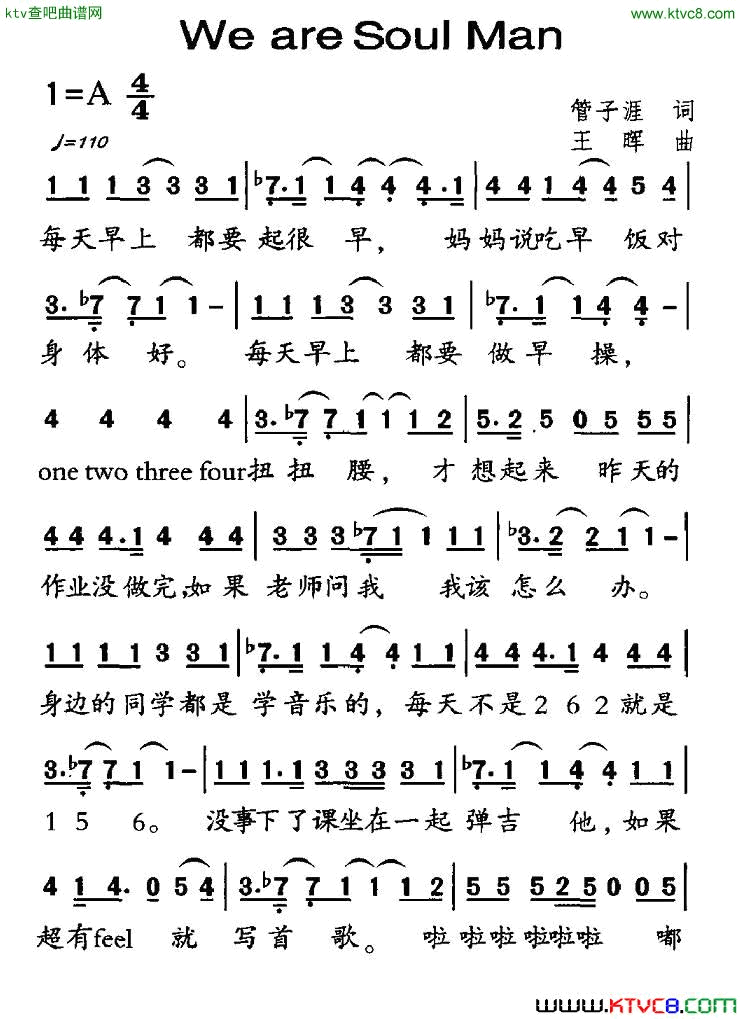 ktv查吧曲谱网
http://www.ktvc8.com
We are Soul Man
1=A 4/4
管子涯 词
♩=110
王 晖 曲
1 1 1 3 3 3 3 1 | ♭7. 1 1 4 4 4. 1 | 4 4 1 4 4 5 4 |
每天早上 都要起很 早， 妈妈说吃早 饭对
3. ♭7 7 1 1 – | 1 1 1 3 3 3 3 1 | ♭7. 1 1 4 4 – |
身体 好。 每天早上 都要 做早 操，
4 4 4 4 | 3. ♭7 7 1 1 1 2 | 5. 2 5 0 5 5 5 |
one two three four扭扭 腰， 才想起来 昨天的
4 4 4. 1 4 4 4 | 3 3 3 ♭7 1 1 1 1 | ♭3. 2 2 1 1 – |
作业没做完,如果 老师问我 我该 怎么 办。
1 1 1 1 3 3 3 1 | ♭7. 1 1 4 4 1 1 | 4 4 4. 1 4 4 4 |
身边的同学都是 学音乐的，每天不是262就是
3. ♭7 7 1 1 – | 1 1 1. 1 3 3 3 3 1 | ♭7. 1 1 4 4 1 1 |
1 5 6。 没事下了课坐在一起 弹吉 他，如果
4 1 4. 0 5 4 | 3. ♭7 7 1 1 1 2 | 5 5 5 2 5 0 0 5 |
超有feel 就 写首 歌。 啦 啦啦 啦啦啦 嘟
www.KTVC8.com